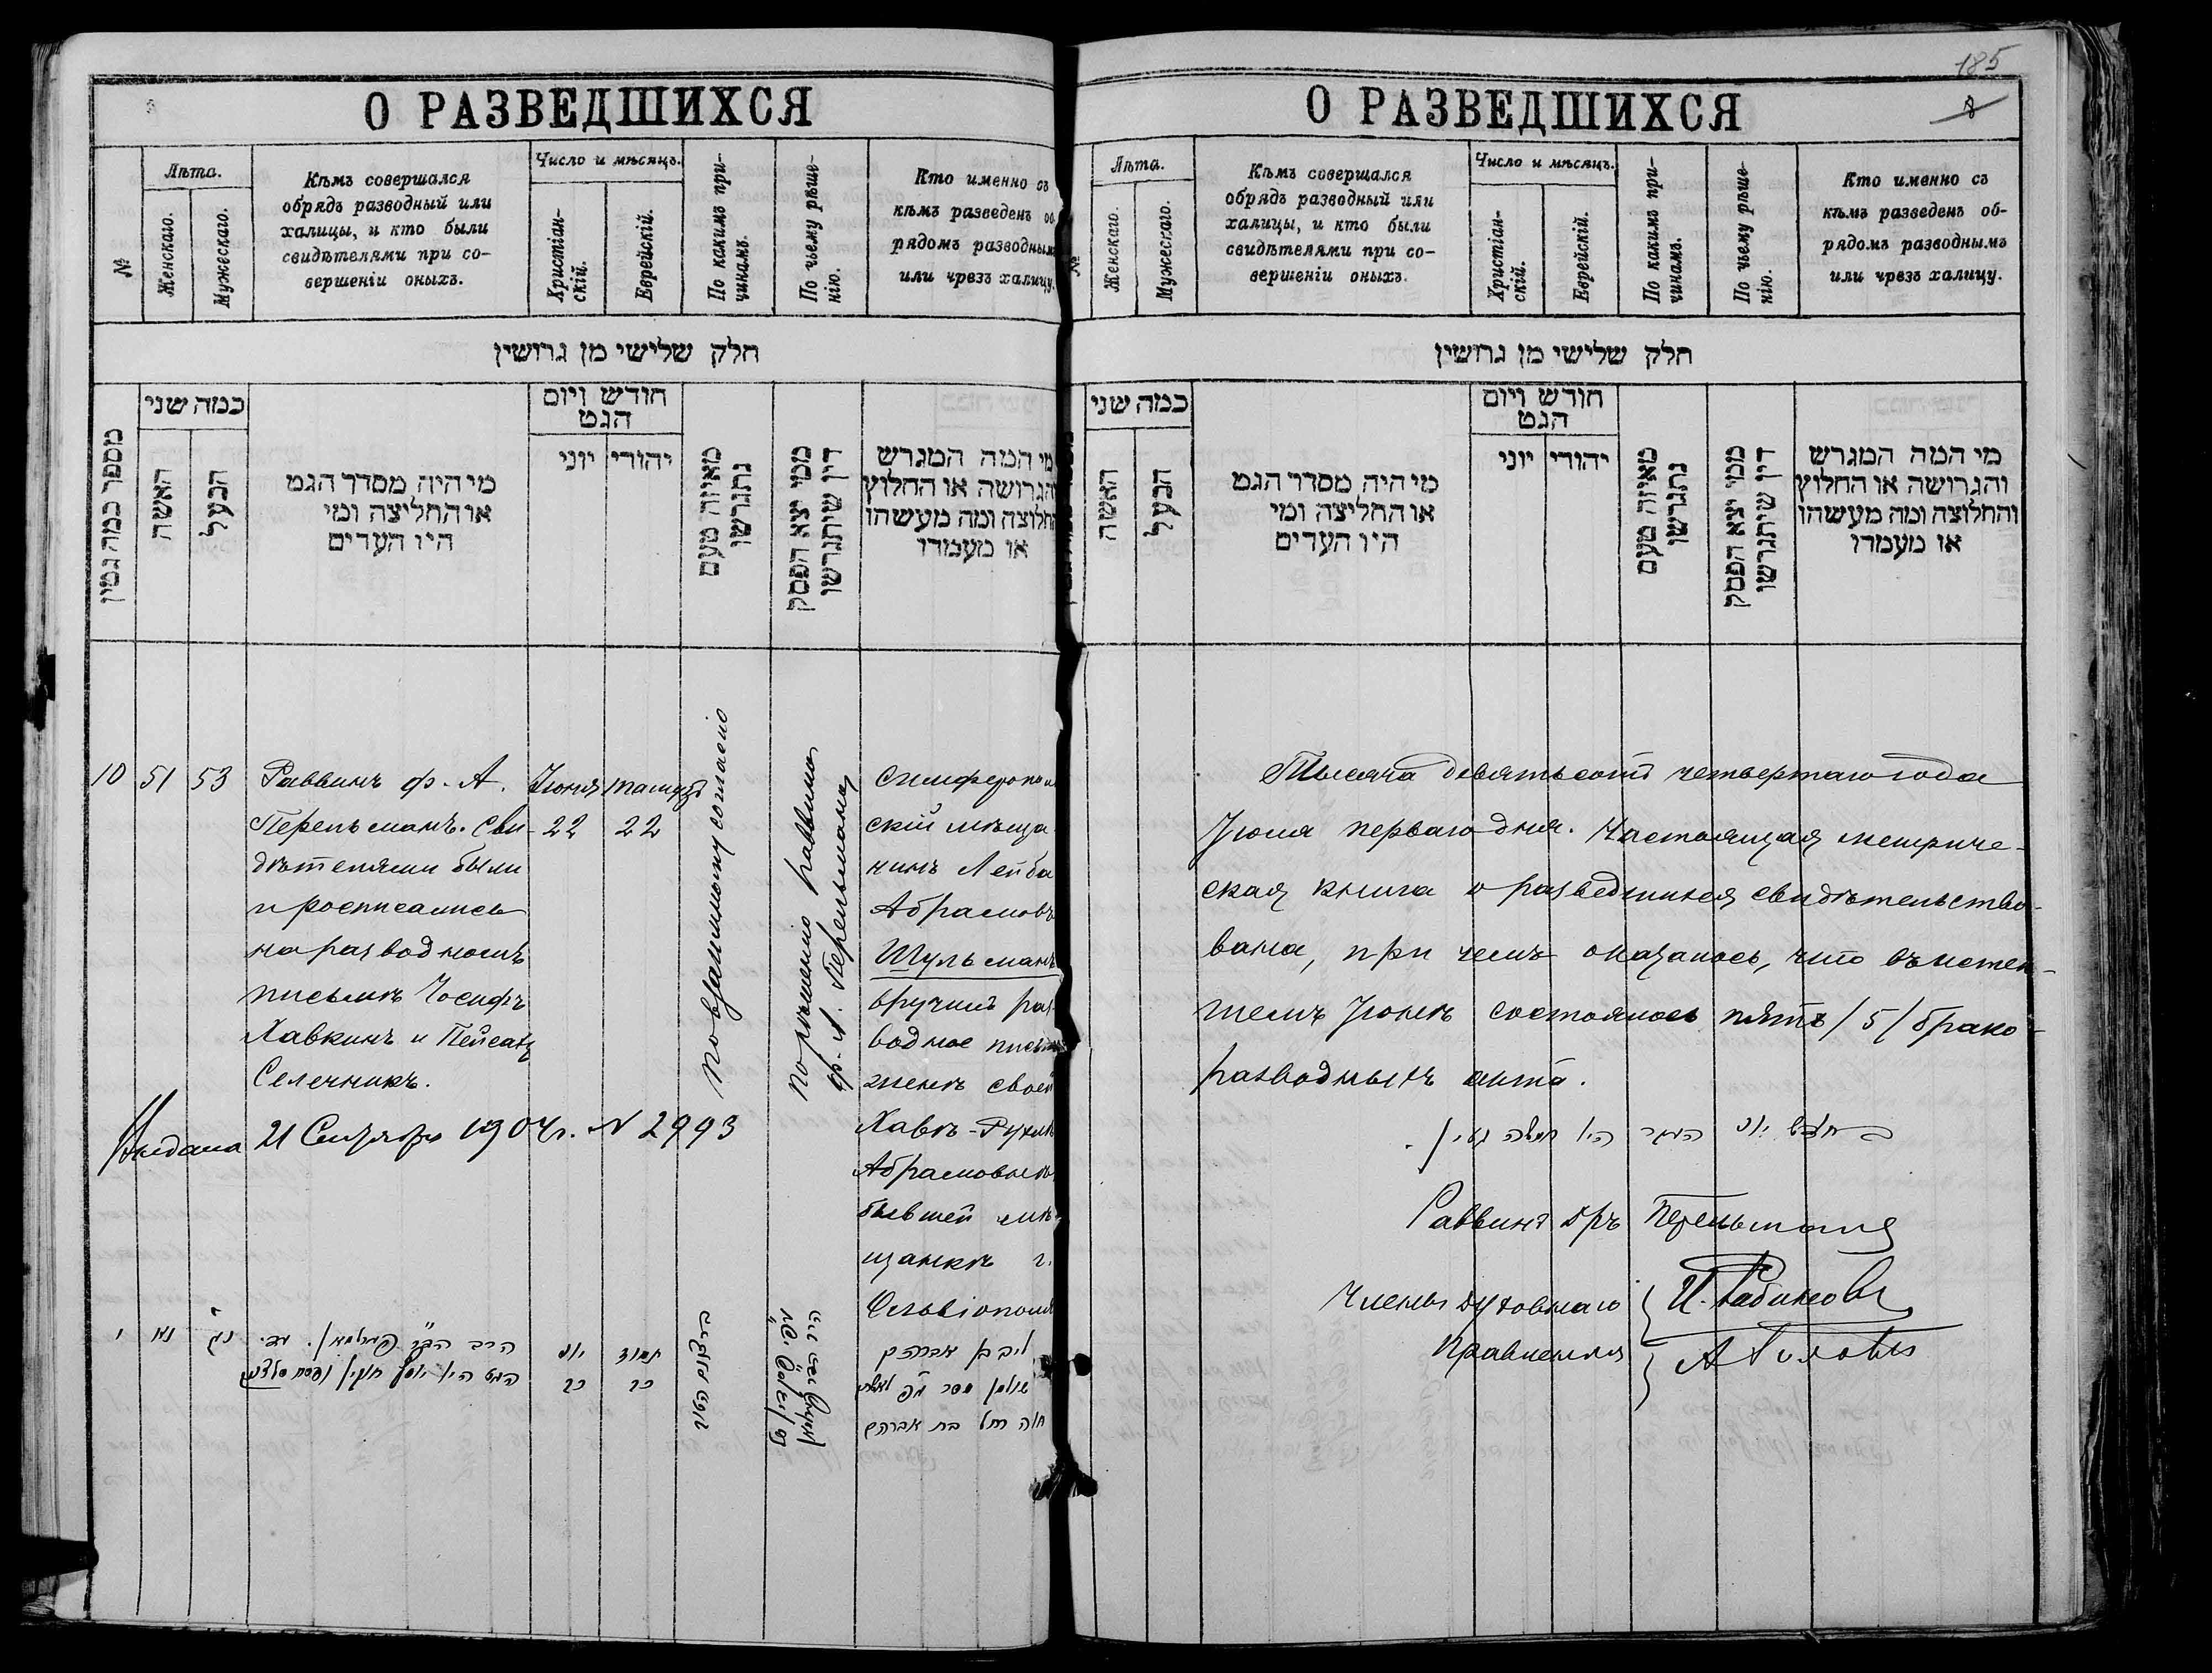 О РАЗВЕДШИХСЯ
№
Лѣта.
Женскаго.
Мужескаго.
Кѣмъ совершался
обрядъ разводный или
халицы, и кто были
свидѣтелями при со-
вершеніи оныхъ.
Число и мѣсяцъ.
Христіан-
скій.
Еврейскій.
По какимъ при-
чинамъ.
По чьему рѣше-
нію.
Кто именно съ
кѣмъ разведенъ об
рядомъ разводным
или чрезъ халицу.
חלק שלישי מן גרושין
מספר כמה גטין
כמה שני
האשה
הבעל
מי היה מסדר הגט
או החליצה ומי
היו העדים
חודש ויום
הגט
יוני
יהודי
מאיזה טעם
נתגרשו
ממי יצא הפסק
דין שיתגרשו
מי המה המגרש
והגרושה או החלוץ
והחלוצה ומה מעשהו
או מעמדו
10 51 53
Раввинъ ф. А.
Перельманъ. Сви-
дѣтелями были
и росписались
на разводномъ
письмѣ Іосифъ
Хавкинъ и Пейсахъ
Селечникъ.
Іюня
22
Тамузъ
22
По взаимному согласію
По рѣшенію раввина
ф. А. Перельмана
Симферополь
скій мѣща
нинъ Лейба
Абрамовъ
Шульманъ
вручилъ раз
водное письмо
женѣ своей
Хавѣ-Рухлѣ
Абрамовнѣ
бывшей мѣ
щанкѣ г.
Ольвіополя
Выдана 21 Сентября 1904 г. № 2993
י נא נג
יוני
כב
תמוז
כב
ליב בן אברהם
חוה רחל בת אברהם
185
О РАЗВЕДШИХСЯ
№
Лѣта.
Женскаго.
Мужескаго.
Кѣмъ совершался
обрядъ разводный или
халицы, и кто были
свидѣтелями при со-
вершеніи оныхъ.
Число и мѣсяцъ.
Христіан-
скій.
Еврейскій.
По какимъ при-
чинамъ.
По чьему рѣше-
нію.
Кто именно съ
кѣмъ разведенъ об-
рядомъ разводнымъ
или чрезъ халицу.
חלק שלישי מן גרושין
כמה שני
האשה
הבעל
מי היה מסדר הגט
או החליצה ומי
היו העדים
חודש ויום
הגט
יוני
יהודי
מאיזה טעם
נתגרשו
ממי יצא הפסק
דין שיתגרשו
מי המה המגרש
והגרושה או החלוץ
והחלוצה ומה מעשהו
או מעמדו
Тысяча девятьсотъ четвертаго года
Іюля перваго дня. Настоящая метриче-
ская книга о разведшихся свидѣтельство-
вана, при чемъ оказалось, что въ истек-
шемъ Іюнѣ состоялось пять /5/ брако-
разводныхъ акта.
בחודש יוני העבר היו חמשה גטין.
Раввинъ Дръ Перельманъ
Члены Духовнаго
Правленія